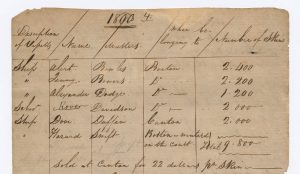 1800
Description of Vessells Name Masters Where belonging to Number of Skins
Ship Alert Bowles Boston 2.500
" Jenny Bowers Do 2.200
" Alexander Dodge Do 1.200
Schr Davidson Do 2.000
Ship Dove Duffen Canton 2.000
" Hazard Swift Boston
on the Coast Total 9.800
Sold at Canton for 22 dollars pr Skin